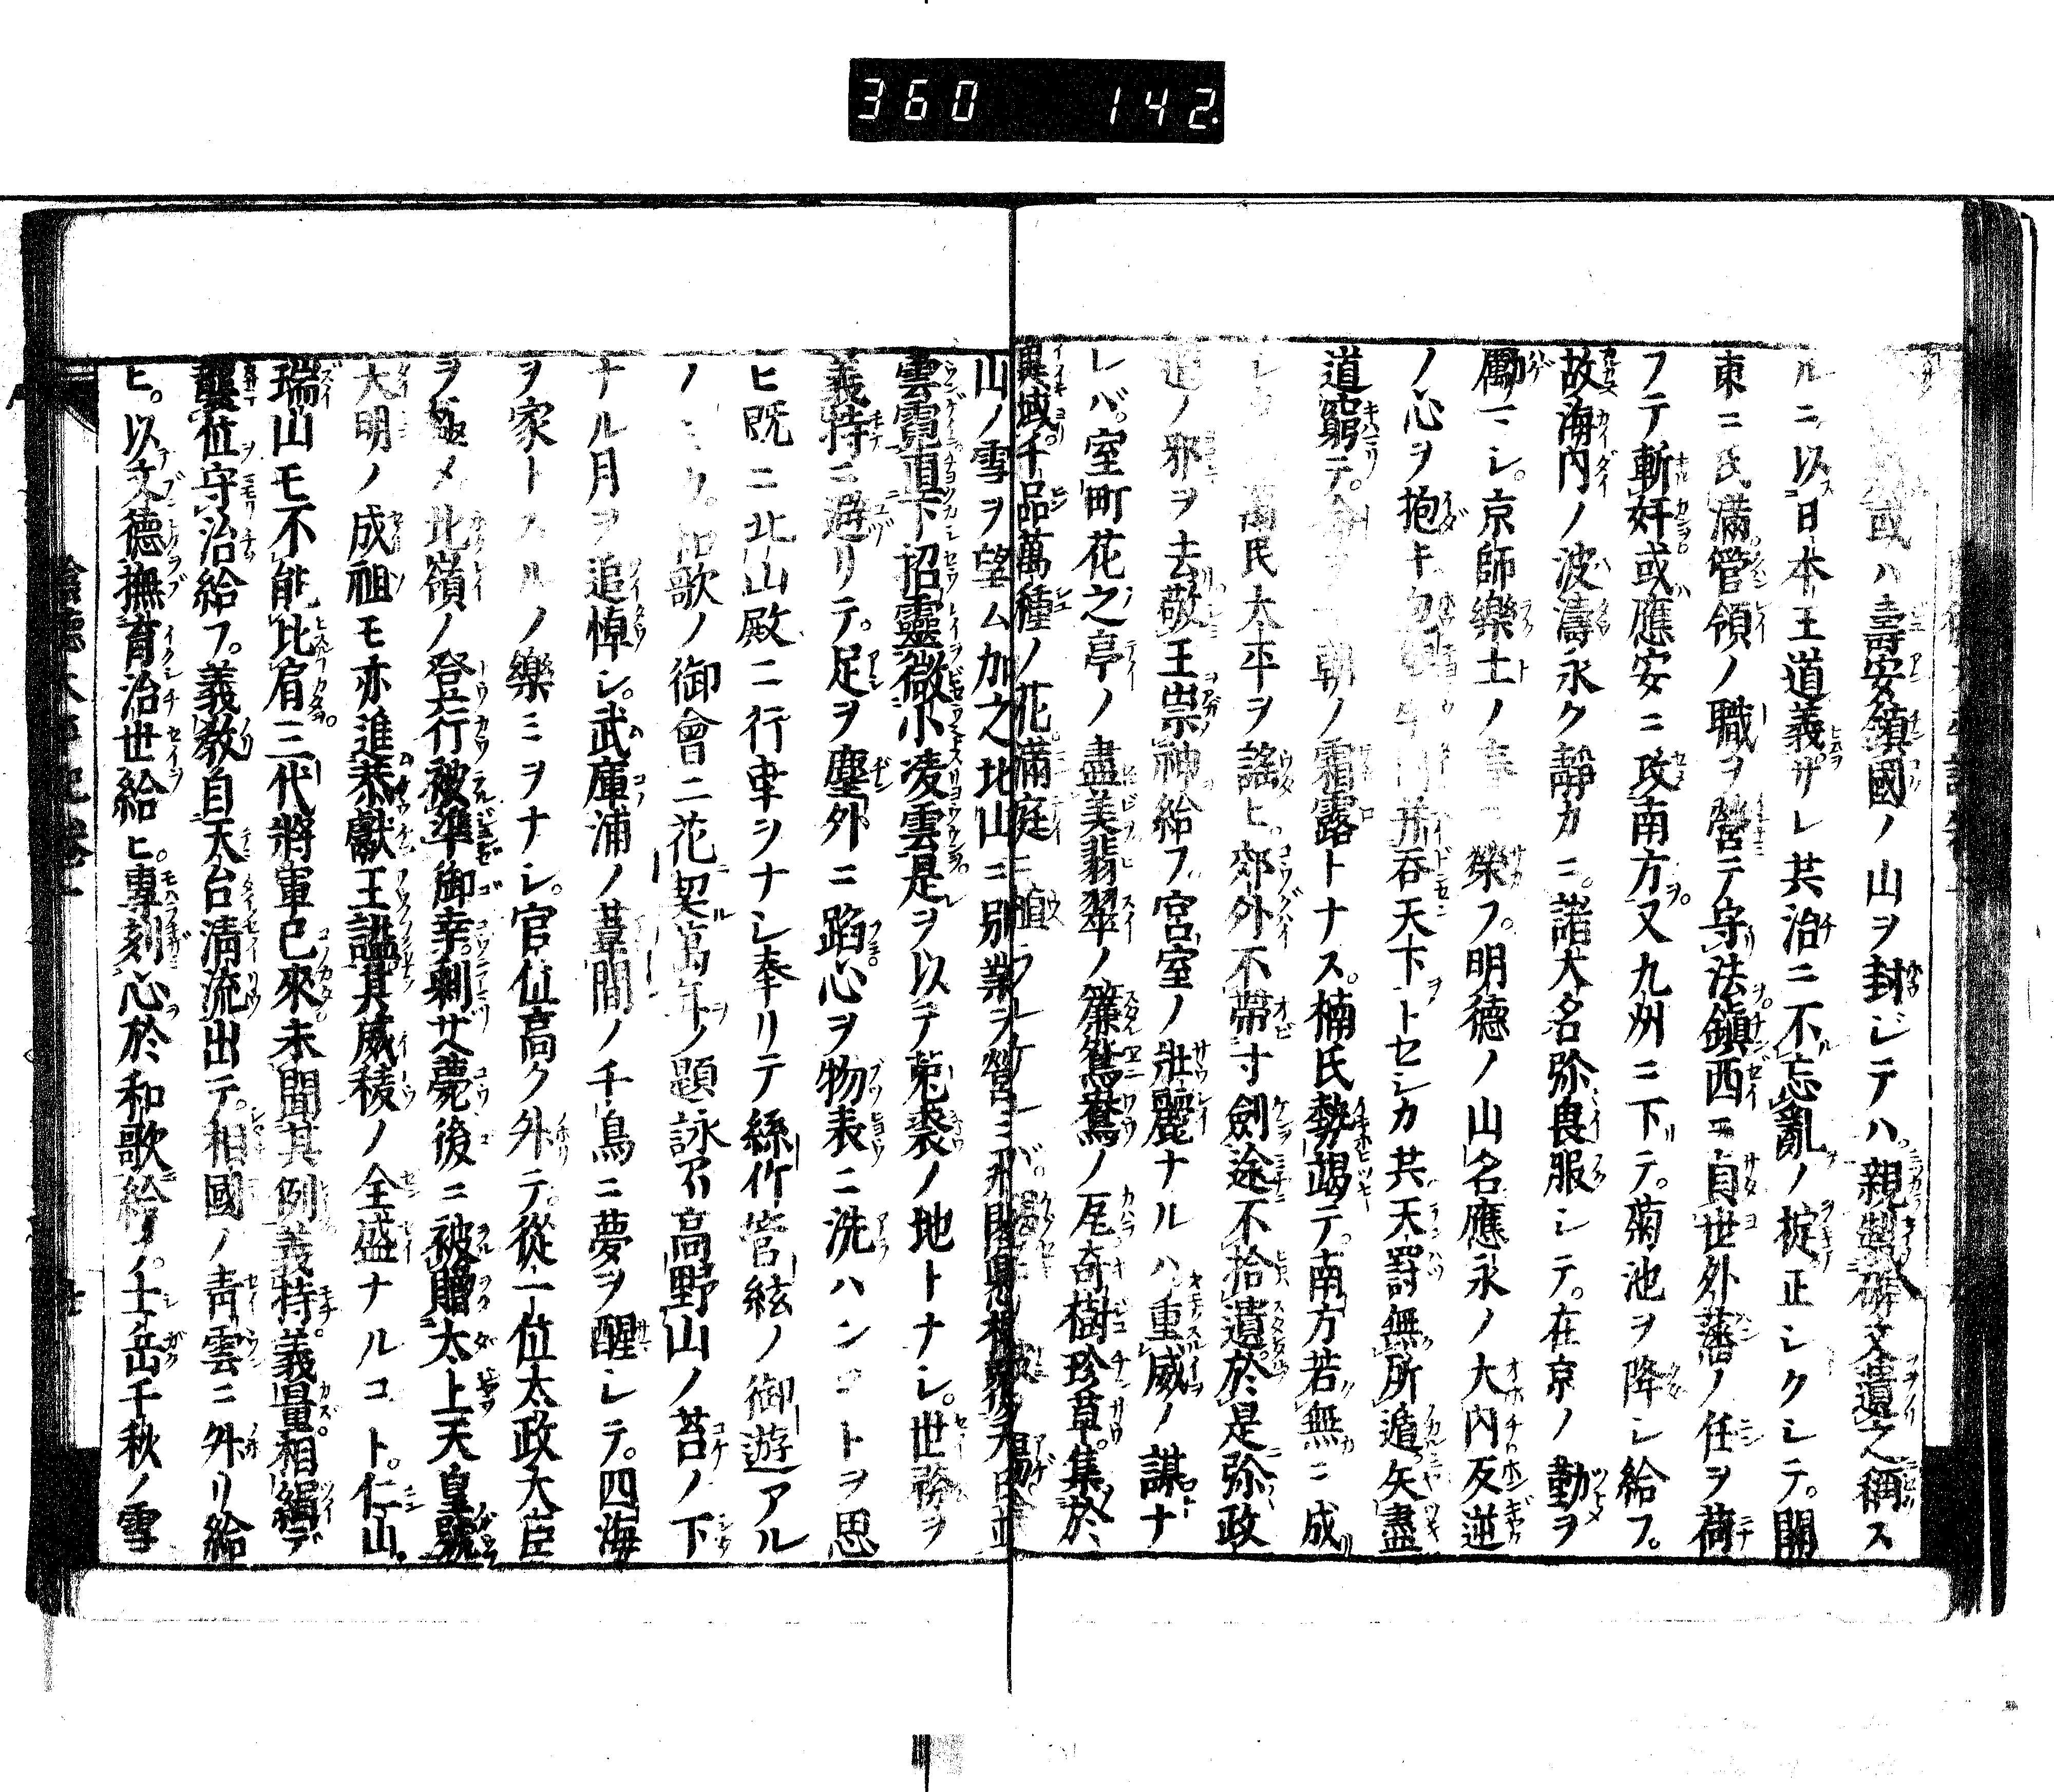 360 142.
或ハ壽安鎮國ノ山ヲ封ジテハ。親製碑文遺之稱ス
ルニ以日本王道義サレ共治ニ不忘亂ノ掟正シクシテ。關
東ニ氏滿管領ノ職ヲ營テ守法鎭西ニ貞世外藩ノ任ヲ荷
フテ斬奸或應安ニ攻南方又九州ニ下テ。菊池ヲ降シ給フ。
故海内ノ波濤永ク靜カニ。諸大名弥良服シテ。在京ノ勤ヲ
勵マシ。京師樂士ノ ニ榮フ。明德ノ山名應永ノ大内反逆
ノ心ヲ抱キ 并呑天下トセシカ共天罸無所遁矢盡
道窮テ。命ヲ一朝ノ霜露トナス。楠氏勢竭テ。南方若無ニ成
萬民太平ヲ謠ヒ。郊外不帶寸劍途不拾遺於是弥政
道ノ邪ヲ去敬王崇神給フ。宮室ノ壯麗ナルハ重威ノ謀ナ
レバ。室町花之亭ノ盡美翡翠ノ簾鴛鴦ノ瓦奇樹珍草。集於
異域。千品萬種ノ花滿庭ニ植ラレケレバ。
山ノ雪ヲ望ム加之北山ニ別業ヲ營ミ飛閣
雲霓直下招靈微小凌雲是ヲ以テ菟裘ノ地トナシ。世務ヲ
義持ニ避リテ。足ヲ塵外ニ蹈心ヲ物表ニ洗ハンコトヲ思
ヒ既ニ北山殿ニ行幸ヲナシ奉リテ絲竹管絃ノ御遊アル
ノミカ。和歌ノ御會ニ花契萬年ノ題詠召高野山ノ苔ノ下
ナル月ヲ追悼シ。武庫浦ノ葦間ノ千鳥ニ夢ヲ醒シテ。四海
ヲ家トスルノ樂ミヲナシ。官位高ク外テ。從一位太政大臣
ヲ極メ北嶺ノ登行被準御幸剩サヘ薨後ニ被贈太上天皇號
大明ノ成祖モ亦進恭獻王謚其威稜ノ全盛ナルコト。仁山。
瑞山モ不能比肩三代將軍已來未聞其例義持。義量相續デ
襲位守治給フ。義教自天台清流出テ。相國ノ靑雲ニ外リ給
ヒ。以文德撫育治世給ヒ。專刻心於和歌給ノ。士岳千秋ノ雪